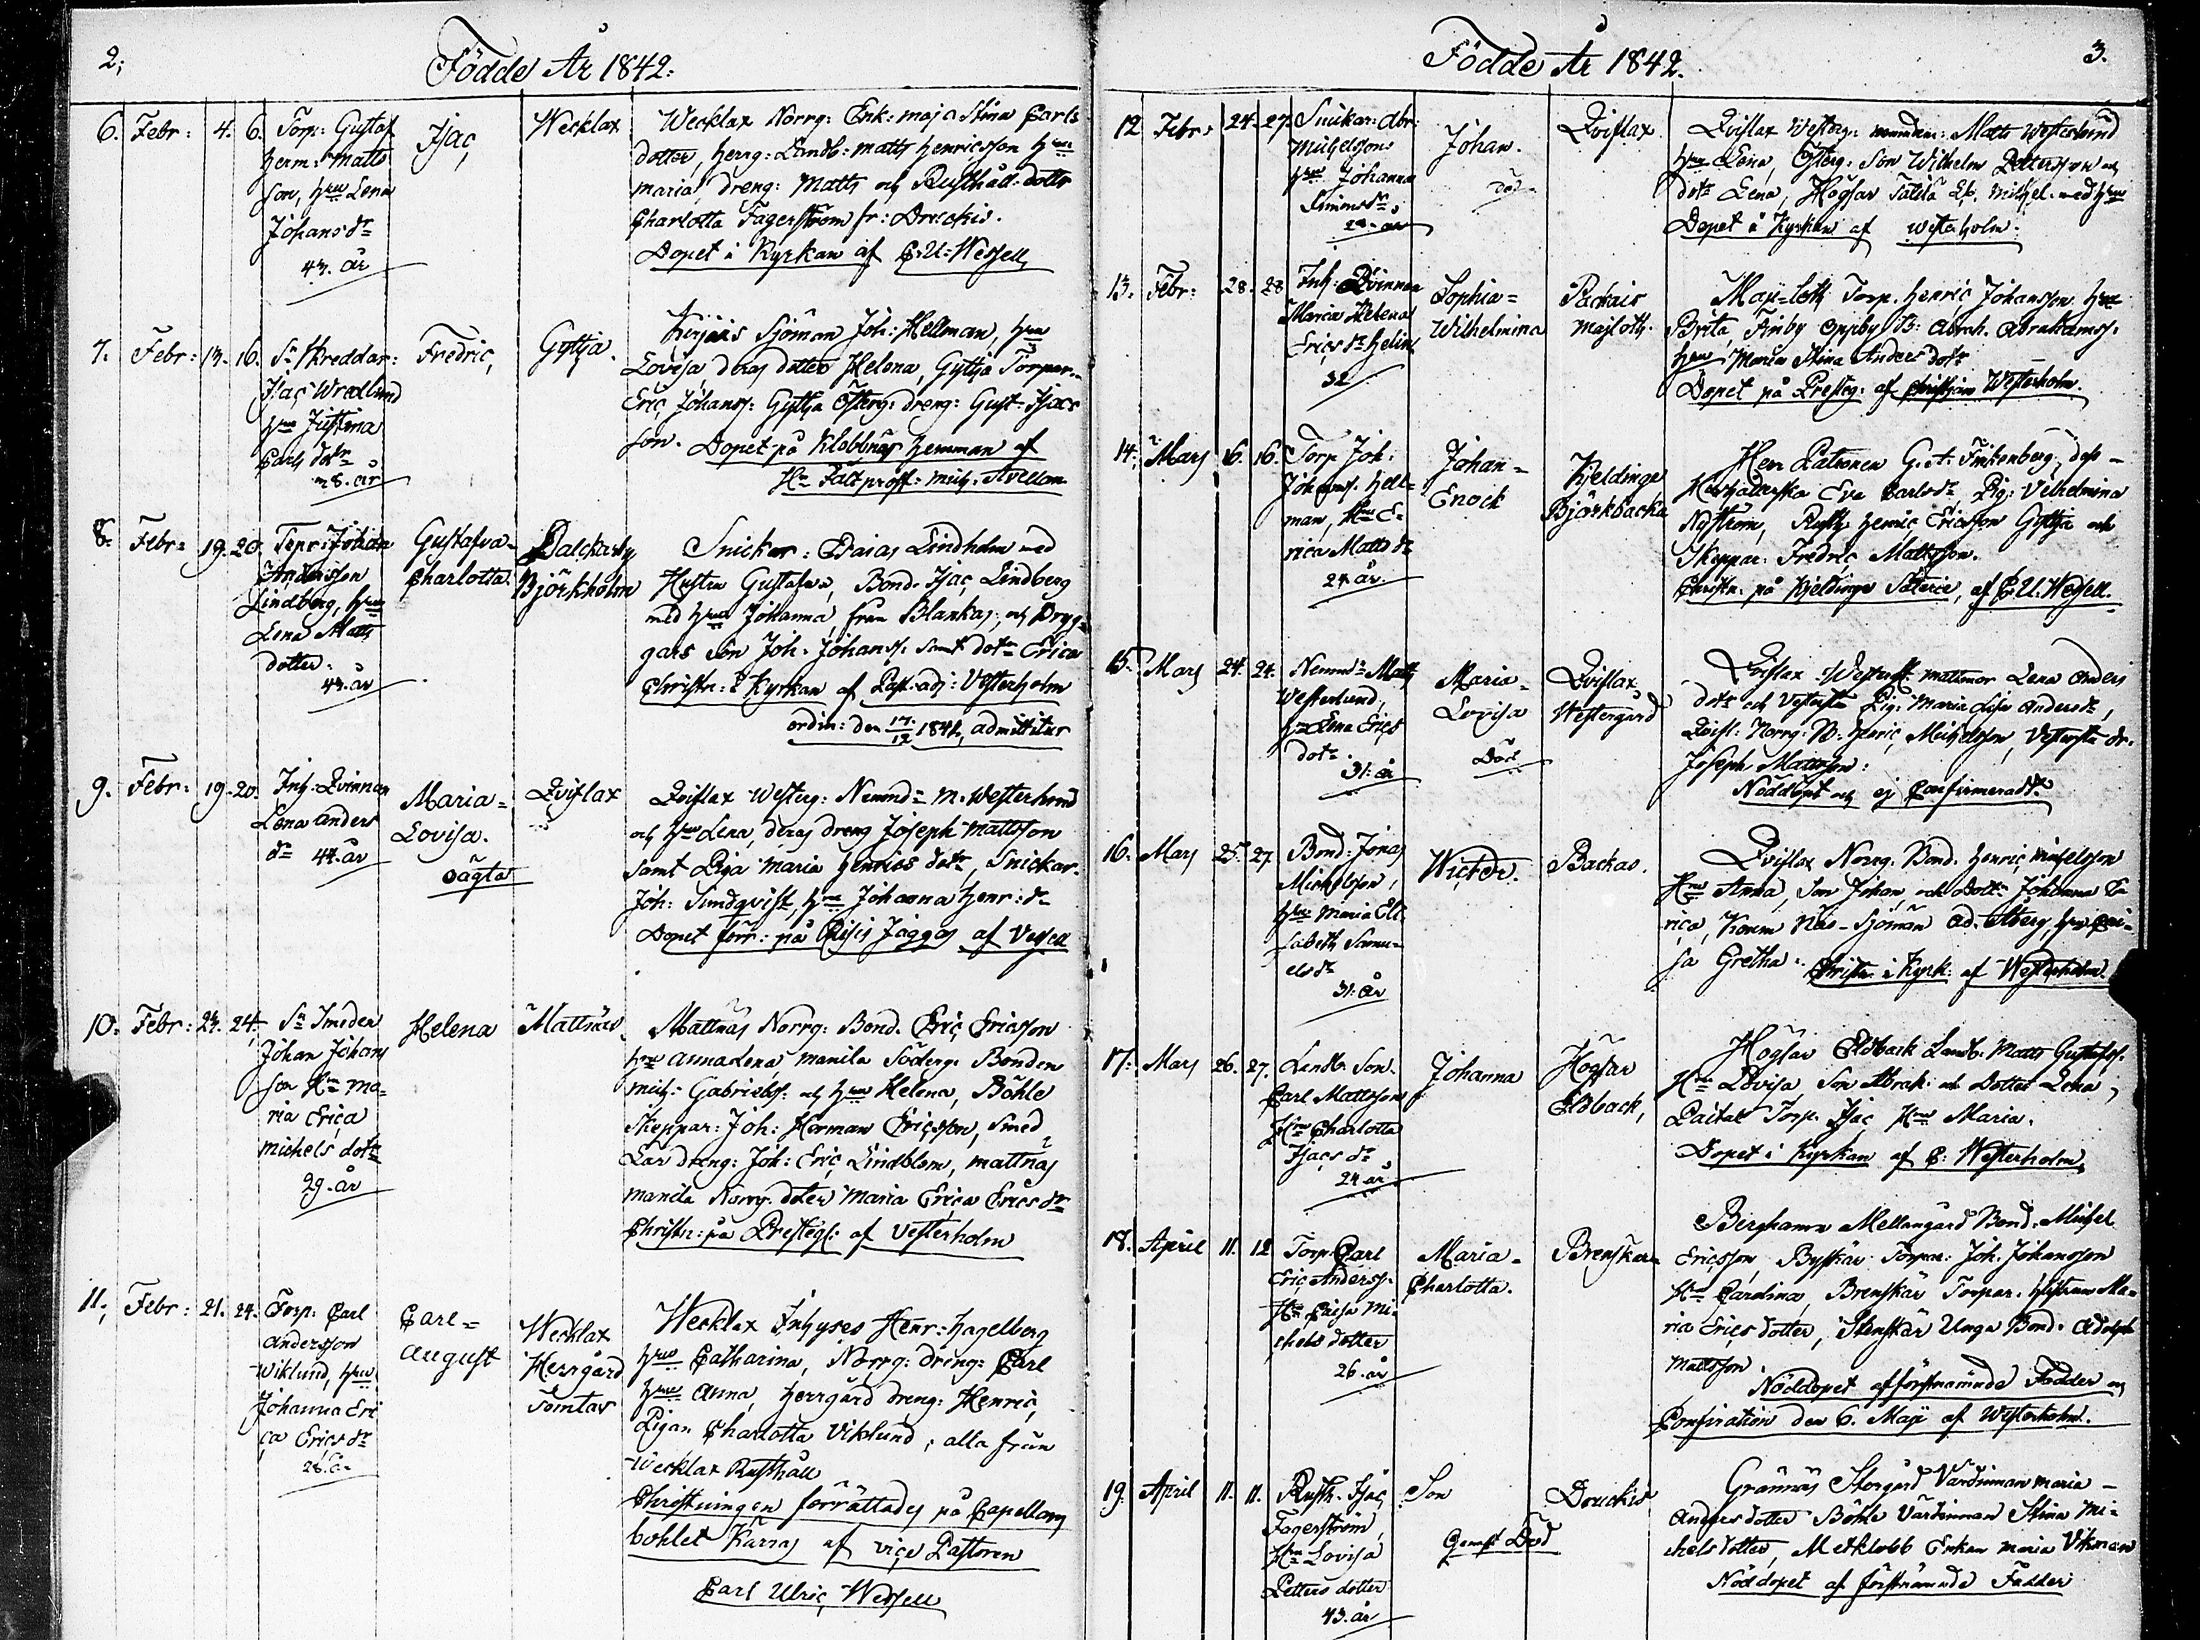 2;
Födde År 1842:
6. Febr: 4. 6. Torp: Gustaf
Herm: Matts
son, Hru Lena
Johans dr
43. år
Isac,
Wecklax
Wecklax Norrg: Enk: Maja Stina Carls
dotter, Herrg: Landb: Matts Henricsson Hru
Maria, dreng: Matts och Rusthåll: dottr
Charlotta Fagerström fr: Druckis.
Dopet i Kyrkan af C: U: Wessell
7. Febr: 13. 16. Sn Skreddar:
Isac Wredlund
Hru Justina
Carls dotr
28. år
Fredric,
Gyttja.
Kirjais Sjöman Joh: Hellman, Hru
Lovisa deras dotter Helena, Gyttja Torpar.
Eric Johanss: Gyttja Österg: dreng: Gust: Isacs
son. Dopet på Klobbnäs Hemman af
Hr Fältprost: Mich: Avellan
8. Febr: 19. 20. Torp: Johan
Andersson
Lindberg, Hru
Lena Matts
dotter.
43. år
Gustafva-
Charlotta.
Dalckarby
Björkholm
Snickar: Esaias Lindholm med
Hustru Gustafva, Bond. Isac Lindberg
med Hru Johanna, från Blankas, och Dryg-
gars Son Joh. Johanss: samt dotr Erica
Christn: i Kyrkan af Past. adj: Vesterholm
ordin: den 17/12 1841, admittitur
9. Febr: 19. 20. Inh. Qvinnan
Lena Anders
dr 44. år
Maria-
Lovisa.
oägta
Qviflax
Qviflax Westerg: Nemnd: M. Westerlund
och Hru Lena, deras dreng Joseph Mattsson
samt Piga Maria Henrics dotr, Snickar.
Joh: Sundqvist, Hru Johanna Henr: dr
Dopet förr: på Risis Jaggas af Vessell
10. Febr: 23. 24. Sn Smeden
Johan Johans
son Hru Ma-
ria Erica
Michels dotr
29. år
Helena
Mattnäs
Mattnäs Norrg: Bond. Eric Ericsson
Hru Anna Lena, Manila Söderg: Bonden
Mich: Gabrielss. och Hru Helena, Böhle
Skeppar: Joh: Herman Ericsson, Smed
Lär dreng: Joh: Eric Lindblom, Mattnäs
Manila Norrg. doter Maria Erica Erics dr
Christn: på Prestegl: af Vesterholm
11. Febr: 21. 24. Torp: Carl
Andersson
Wiklund, Hru
Johanna Eri
ca Erics dr
28. år
Carl-
August
Wecklax
Herrgård
Tomtar
Wecklax Inhyses Henr: Hagelberg
Hru Catharina, Norrg: dreng: Carl
Hru Anna, Herrgård dreng: Henric,
Pigan Charlotta Viklund, alla från
Wecklax Rusthåll
Christningen förrättades på Capellans
bohlet Kärras af vice Pastoren
Carl Ulric Wessell
Födde År 1842.
3.
12 Febr: 24. 27. Snickar: Abr:
Michelsson
Hru Johanna
Simons dr
29. år
Johan.
död
Qviflax.
Qviflax Westerg: Nemndem: Matts Westerlund
Hru Lena, Österg: Son Wilhelm Pettersson och
dotr Lena, Högsar Michel. med Hru
Dopet i Kyrkan af Westerholm.
13. Febr: 28. 28 Inh: Qvinnan
Maria Helena
Erics dr Helin
32
Sophia-
Wilhelmina
Packais
Majloth.
Maj-loth Torp. Henric Johansson Hru
Brita, Finby Oppby B: Abrah. Abrahamss.
Hru Maria Stina Anders dotr
Dopet på Presteg: af Christian Westerholm.
14. Mars 16. 16. Torp Joh:
Johanss. Hell-
man, Hru E-
rica Matts dr
24 år.
Johan-
Enock
Kjeldinge
Björkbacka
Herr Patronen G. A. Finkenberg, dess-
Hushållerska Eva Carls dr, Pig: Vilhelmina
Nyström, Rusth Henric Ericsson Gyttja och
Skeppar: Fredric Mattsson.
Christn. på Kjeldinge Säterie, af C. U. Wessell.
15. Mars 24. 24. Nemnd: Matts
Westerlund,
Hru Lena Erics
dotr
31. år
Maria-
Lovisa
Död
Qviflax
Westergård
Qviflax Mattmor Lena Anders
dotr och Pig: Maria Lisa Anders dr,
Qvifl: Norrg: B. Henric Michelsson, dr.
Joseph Mattsson:
Nöddöpt och ej Confirmeradt.
16. Mars 25. 27. Bond: Jonas
Michelsson,
Hru Maria Eli-
sabeth Samu-
els dr
31. år
Wictor.
Backas.
Qviflax Norrg. Bond. Henric Michelsson
Hru Anna, Son Johan, och Dottr Johanna E-
rica, Norrn Näs- Sjöman Ad. Åberg, Hru Cai-
sa Gretha. Christn i Kyrk: af Westerholm.
17. Mars 26. 27. Landb. Son.
Carl Mattsson
Hru Charlotta
Isacs dr
24 år
Johanna
Högsar
Eldback,
Högsar Eldback Landb. Matts Gustafss.
Hru Lovisa Son Abrah: och Dotter Lena,
Torp. Isac Hru Maria.
Dopet i Kyrkan af C: Westerholm
18. April 11. 12. Torp. Carl
Eric Anderss.
Hru Caisa Mi-
chels dotter
26. år
Maria-
Charlotta.
Brenskär
Berghamn Mellangård Bond. Michel
Ericsson, Byskär Torpar: Joh. Johansson
Hru Carolina, Brenskär Torpar. Hustrun Ma-
ria Erics dotter, Stenskär Unga Bond. Adolph
Mattsson
Nöddopet af förstnämnde Fadder och
Confiration den 6. Maji af Westerholm.
19. April 11. 11. Rusth. Isac
Fagerström,
Hru Lovisa
Petters dotter
43. år
Son
Genast Död
Druckis
Grännäs Storgård Värdinnan Maria-
Anders dotter Böhle Värdinnan Stina Mi-
chels dotter, Metklobb Enkan Maria Vikman
Nöddopet af förstnämnde Fadder